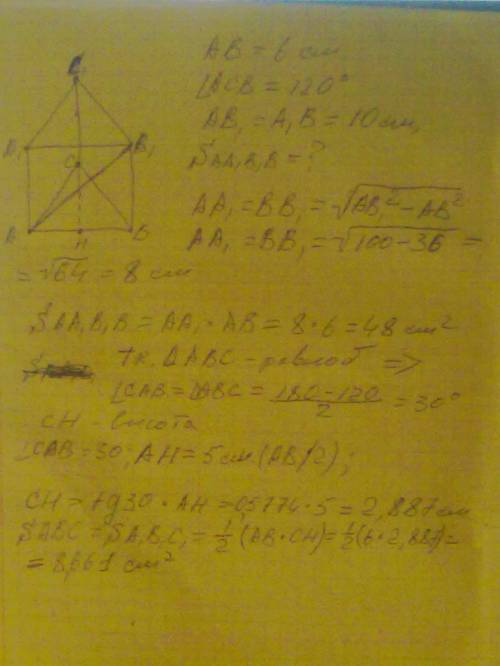 AB = 6 см
∠ACB = 120°
AB₁ = A₁B = 10 см,
SAA₁B₁B = ?
C₁
A₁
B₁
C
A
H
B
AA₁ = BB₁ = √AB₁² - AB²
AA₁ = BB₁ = √100 - 36 =
= √64 = 8 см
SAA₁B₁B = AA₁ · AB = 8 * 6 = 48 см²
Т.к. △ABC - равноб =>
∠CAB = ∠ABC = (180 - 120)/2 = 30°
CH - высота
∠CAB = 30; AH = 5 см (AB/2);
CH = tg30 * AH = 05774 * 5 = 2,887 см
SABC = SA₁B₁C₁ = 1/2 (AB * CH) = 1/2 (6 * 2,887) =
= 8,661 см²